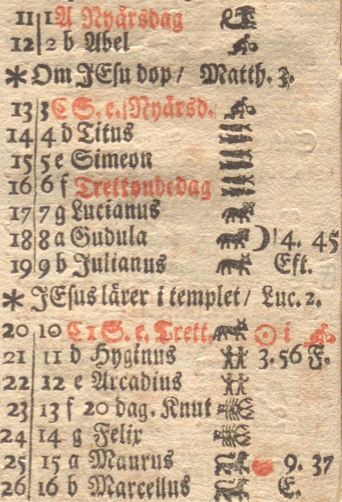 11 1 A Nyårsdag
12 2 b Abel
* Om JEsu dop / Matth. 3.
13 3 C S. e. Nyårsd.
14 4 d Titus
15 5 e Simeon
16 6 f Trettondedag
17 7 g Lucianus
18 8 a Gudula 4. 45
19 9 b Julianus Eft.
* JEsus lärer i templet / Luc. 2.
20 10 C 1 S. e. Trett. i
21 11 d Hyginus 3. 56 F.
22 12 e Arcadius
23 13 f 20 dag. Knut
24 14 g Felix
25 15 a Maurus 9. 37
26 16 b Marcellus E.